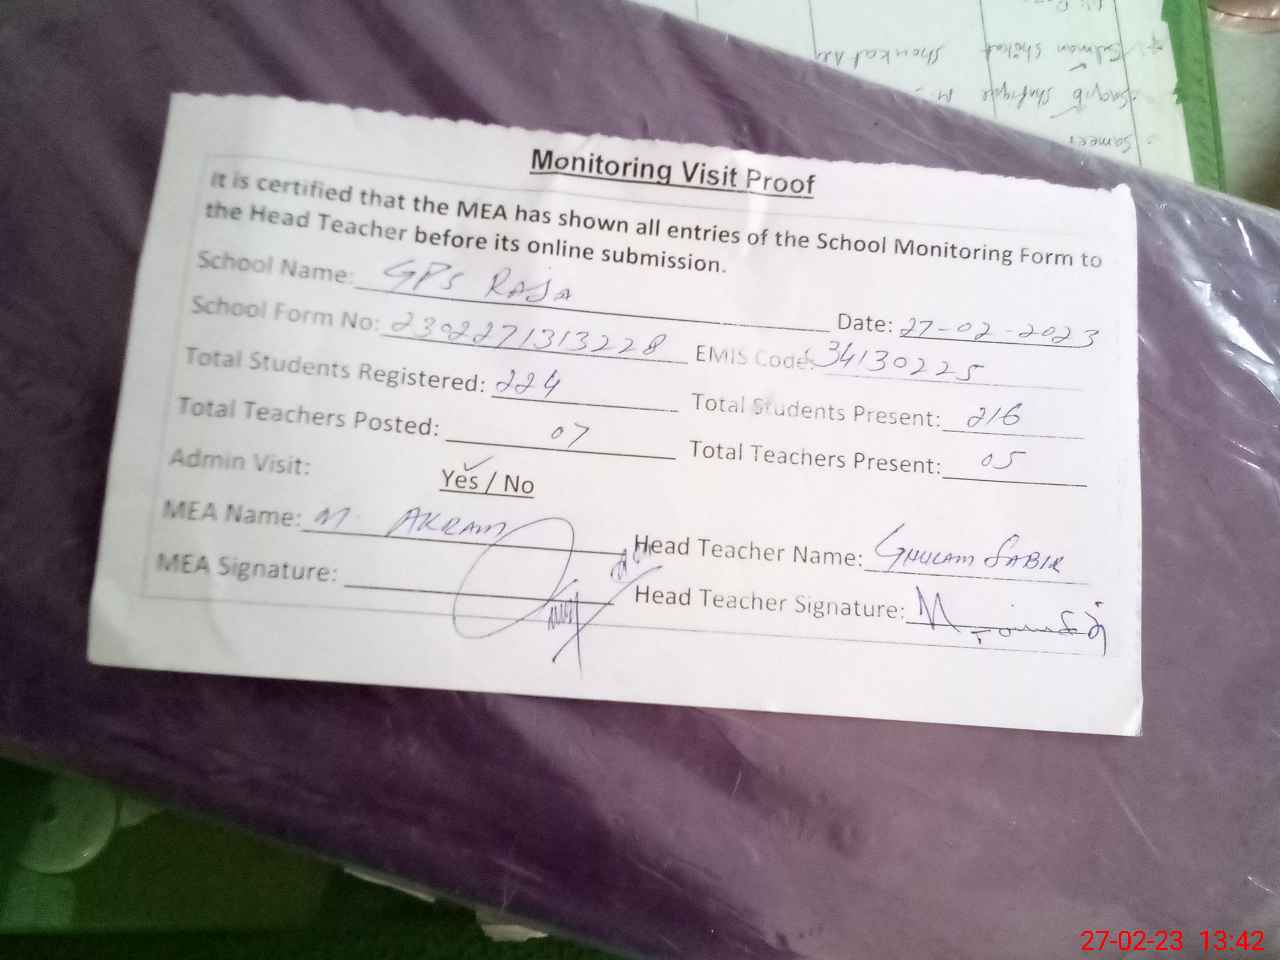 Monitoring Visit Proof
It is certified that the MEA has shown all entries of the School Monitoring Form to
the Head Teacher before its online submission.
School Name: GPS RAJA Date: 27-02-2023
School Form No: 2302271313228 EMIS Code: 34130225
Total Students Registered: 224 Total Students Present: 216
Total Teachers Posted: 07 Total Teachers Present: 05
Admin Visit: Yes / No
MEA Name: M. AKRAM Head Teacher Name: GHULAM SABIR
MEA Signature: Head Teacher Signature:
Salman Shokat Shoukat Ali
Saqib Shafique M.
Sameer
27-02-23 13:42